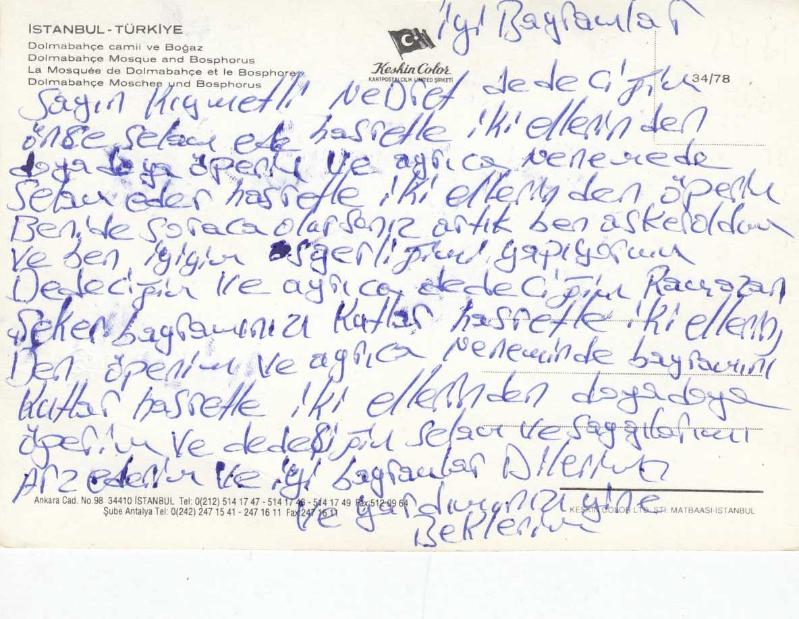 İSTANBUL - TÜRKİYE
Dolmabahçe camii ve Boğaz
Dolmabahçe Mosque and Bosphorus
La Mosquée de Dolmabahçe et le Bosphore
Dolmabahçe Moschee und Bosphorus
Keskin Color
KARTPOSTALCILIK LIMITED ŞİRKETİ
34/78
iyi Bayramlar
Sayın Kıymetli Nedret dedeciğim
önce selam ede hasretle iki ellerinden
doyadoya öperim ve ayrıca Nenemede
Selam eder hasretle iki ellerinden öperim
Benide soraca olarsanız artık ben askeroldum
ve ben iyiyim asgerliğimi yapıyorum
Dedeciğim ve ayrıca dedeciğim Ramazan
şeker bayramınızı Kutlar hasretle iki ellerin
Den öperim ve ayrıca Neneminde bayramını
Kutlar hasretle iki ellerinden doyadoya
öperim ve dedeciğim selam ve saygılarımı
Arz ederim ve iyi bayramlar Dilerim
ve yardımınızı yine
Beklerim
Ankara Cad. No.98 34410 İSTANBUL Tel: 0(212) 514 17 47 - 514 17 48 - 514 17 49 Fax: 512 09 64
Şube Antalya Tel: 0(242) 247 15 41 - 247 16 11 Fax: 247 16 11
KESKİN COLOR LTD. ŞTİ. MATBAASI-İSTANBUL